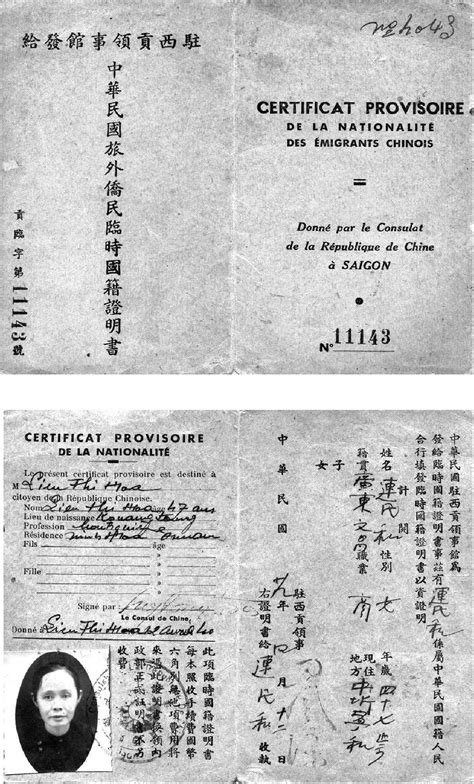 駐西貢領事館發給
中華民國旅外僑民臨時國籍證明書
貢臨字第11143號
CERTIFICAT PROVISOIRE
DE LA NATIONALITÉ
DES ÉMIGRANTS CHINOIS
Donné par le Consulat
de la République de Chine
à SAIGON
N° 11143
CERTIFICAT PROVISOIRE
DE LA NATIONALITÉ
Le présent certificat provisoire est destiné à
M Lien Thi Hoa
citoyen de la République Chinoise.
Nom Lien Thi Hoa âge 47 ans
Lieu de naissance Kouang Toung
Profession
Résidence Ninh Hoa
Fils âge
Fille
Signé par
Le Consul de Chine,
Donné à Lien Thi Hoa
此項臨時國籍證明書
每本照收手續費國幣
六角
來換
收費
中華民國駐西貢領事館為
發給臨時國籍證明書事茲有連民和係屬中華民國國籍人民
合行填發臨時國籍證明書以資證明
計開
姓名連民和性別女年歲四十七歲
籍貫廣東文昌職業商現住地方
子
女
駐西貢領事
中華民國廿九年四月十二
右證明書給連民和收執